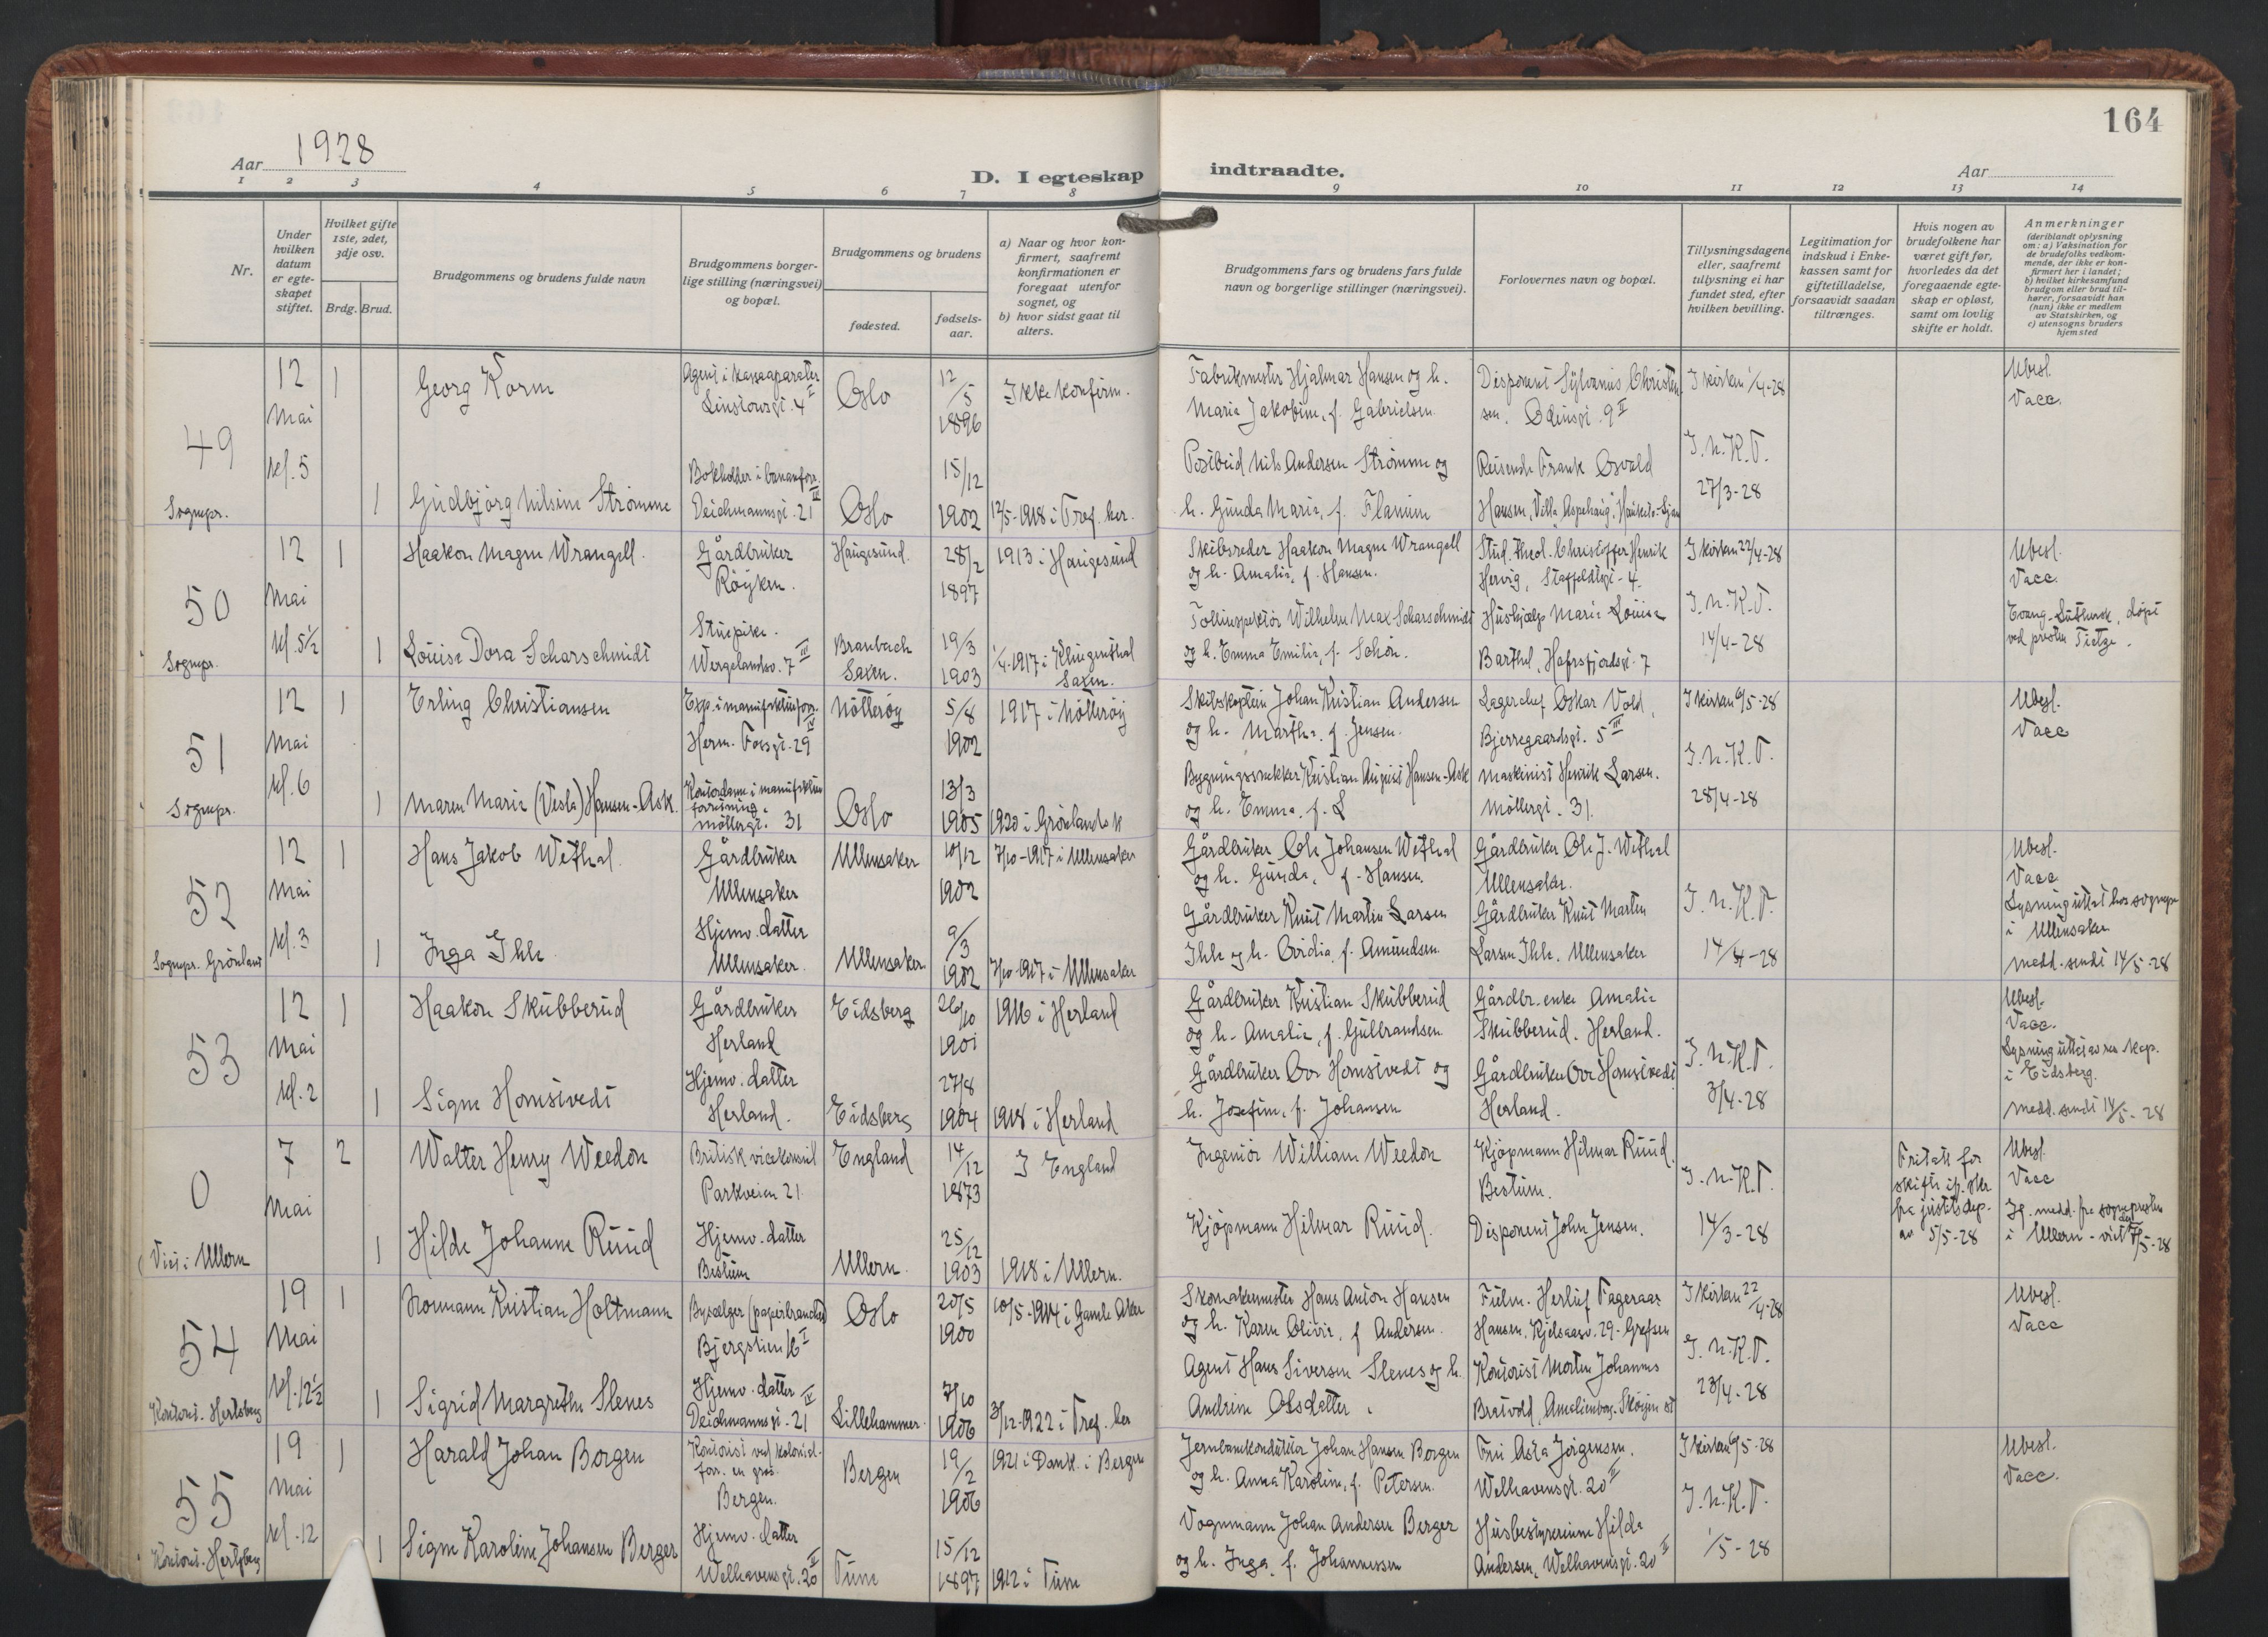 164
Aar 1928
D. I egteskap indtraadte.
Aar
1 2 3 4 5 6 7 8 9 10 11 12 13 14
Nr.
Under hvilken datum er egteskapet stiftet.
Hvilket gifte 1ste, 2det, 3dje osv.
Brdg. Brud.
Brudgommens og brudens fulde navn
Brudgommens borgerlige stilling (næringsvei) og bopæl.
Brudgommens og brudens
fødested.
fødselsaar.
a) Naar og hvor konfirmert, saafremt konfirmationen er foregaat utenfor sognet, og
b) hvor sidst gaat til alters.
Brudgommens fars og brudens fars fulde navn og borgerlige stillinger (næringsvei).
Forlovernes navn og bopæl.
Tillysningsdagene eller, saafremt tillysning ei har fundet sted, efter hvilken bevilling.
Legitimation for indskud i Enkekassen samt for giftetilladelse, forsaavidt saadan tiltrænges.
Hvis nogen av brudefolkene har været gift før, hvorledes da det foregaaende egteskap er opløst, samt om lovlig skifte er holdt.
Anmerkninger
(deriblandt oplysning om: a) Vaksination for de brudefolks vedkommende, der ikke er konfirmert her i landet; b) hvilket kirkesamfund brudgom eller brud tilhører, forsaavidt han (hun) ikke er medlem av Statskirken, og c) utensogns bruders hjemsted
49
Sognepr.
12 Mai kl. 5
1
Georg Korm
Agent i kassaaparater
Linstowsgt. 4 II
Oslo
12/5 1896
Ikke konfirm.
Fabrikmester Hjalmar Hansen og h.
Maria Jakobine, f. Gabrielsen.
Disponent Sylvanus Christensen. Odinsgt. 9 II
I kirken 1/4-28
Ubesl.
Vacc.
1
Gudbjörg Nilsine Strömme
Bokholder i bananforr.
Deichmannsgt. 21 III
Oslo
15/12 1902
12/5-1918 i Tref. her.
Postbud Nils Andersen Strömme og
h. Gunda Maria, f. Flamin
Reisende Frank Osvald
Hansen, Villa Aspehaug, Hauketo-Ljan
J. N. K. T.
27/3-28
50
Sognepr.
12 Mai kl. 5½
1
Haakon Magne Wrangell.
Gårdbruker
Röyken.
Haugesund.
28/2 1897
1913 i Haugesund
Skibsreder Haakon Magne Wrangell
og h. Amalie, f. Hansen.
Stud. theol. Christoffer Henrik
Hervig, Staffeldtsgt. 4.
I kirken 22/4-28
Ubesl.
Vacc.
1
Louise Dora Scharschmidt
Stuepike.
Wergelandsv. 7 III
Branbach
Saxen.
19/3 1903
1/4-1917 i Klingenthal
Saxen.
Tollinspektör Wilhelm Max Scharschmidt
og h. Emma Emilie, f. Schön.
Hushjælp Marie Louise
Barthel, Hafrsfjordsgt. 7
J. N. K. T.
14/4-28
Evang-Luthersk, döpt
ved presten Tietze.
51
Sognepr.
12 Mai kl. 6
1
Erling Christiansen
Exp. i manufakturforr.
Herm. Fossgt. 29 IV
Nötteröy
5/8 1902
1917 i Nötteröy
Skibskaptein Johan Kristian Andersen
og h. Marthe, f. Jensen.
Lagerchef Oskar Vold,
Bjerregaardsgt. 5 III
I kirken 6/5-28
Ubesl.
Vacc
1
Maren Marie (Vesla) Hansen-Ask.
Kontordame i manufaktur
forretning.
Möllergt. 31
Oslo
13/3 1905
1920 i Grönlands k
Bygningssnekker Kristian August Hansen-Ask
og h. Emma, f. L
Maskinist Henrik Larsen.
Möllergt. 31.
J. N. K. T.
28/4-28
52
Sognepr. Grönland
12 Mai kl. 3
1
Hans Jakob Wethal
Gårdbruker
Ullensaker
Ullensaker
10/12 1902
7/10-1917 i Ullensaker
Gårdbruker Ole Johansen Wethal
og h. Gunda, f. Hansen.
Gårdbruker Ole J. Wethal
Ullensaker.
Ubesl.
Vacc
Lysning uttat hos sognepr
i Ullensaker
medd. sendt 14/5-28
1
Inga Ihle
Hjemv. datter
Ullensaker.
Ullensaker
9/3 1902
7/10-1917 i Ullensaker
Gårdbruker Knut Martin Larsen
Ihle og h. Ovidia, f. Amundsen.
Gårdbruker Knut Marten
Larsen Ihle. Ullensaker
J. N. K. T.
14/4-28
53
12 Mai kl. 2
1
Haakon Skubberud
Gårdbruker
Herland
Eidsberg
26/10 1901
1916 i Herland
Gårdbruker Kristian Skubberud
og h. Amalie, f. Gulbrandsen
Gårdbr. enke Amalie
Skubberud. Herland.
Ubesl.
Vacc.
Lysning uttat av res. kap.
i Eidsberg.
Medd. sendt 14/5-28
1
Signe Homstvedt
Hjemv. datter
Herland.
Eidsberg
27/8 1904
1918 i Herland
Gårdbruker Ove Homstvedt og
h. Josefine, f. Johansen
Gårdbruker Ove Homstvedt
Herland.
J. N. K. T.
3/4-28
0
Viet i Ullern
7 Mai
2
Walter Henry Weedon
Britisk vicekonsul
Parkveien 21
England
14/12 1873
I England
Ingeniör William Weedon
Kjöpmann Hilmar Ruud.
Bestum.
J. N. K. T.
14/3-28
Fritatt for
skifte if. skr
fra justitsdep.
av 5/5-28
Ubesl.
Vacc
If. medd. fra sognepresten
i Ullern - viet der 7/5-28
1
Hilde Johanne Ruud
Hjemv. datter
Bestum
Ullern.
25/12 1903
1918 i Ullern.
Kjöpmann Hilmar Ruud.
Disponent John Jensen.
54
Kontorist. Hertzberg
19 Mai kl. 12½
1
Normann Kristian Holtmann
Byselger (papirbranchen)
Bjergstien 16 I
Oslo
20/5 1900
10/5-1914 i Gamle Aker
Skomakermester Hans Anton Hansen
og h. Karen Olivie, f. Andersen.
Fulm. Herluf Fageraas
Hansen, Kjelsaasv. 29-Grefsen
I kirken 22/4-28
Ubesl.
Vacc
1
Sigrid Margrethe Slenes
Hjemv. datter
Deichmannsgt. 21 IV
Lillehammer.
7/10 1906
3/12-1922 i Tref. her
Agent Hans Siversen Slenes og h.
Andrine Olsdatter.
Kontorist Morten Johannes
Bratvold, Amalienborg-Sköyen st
J. N. K. T.
23/4-28
55
Kontorist. Hertzberg
19 Mai kl. 12
1
Harald Johan Borgen
Kontorist ved kolonial-
forr. en gros.
Bergen.
Bergen
19/2 1906
1921 i Domk. i Bergen
Jernbanekonduktör Johan Hansen Borgen
og h. Anna Karoline, f. Petersen.
Fru Asta Jörgensen.
Welhavensgt. 20 II
I kirken 6/5-28
Ubesl.
Vacc.
1
Signe Karoline Johansen Berger
Hjemv. datter
Welhavensgt. 20 II
Tune
15/12 1897
1912 i Tune
Vognmann Johan Andersen Berger
og h. Inga, f. Johannessen
Husbestyrerinne Hilda
Andersen, Welhavensgt. 20 II
J. N. K. T.
1/5-28